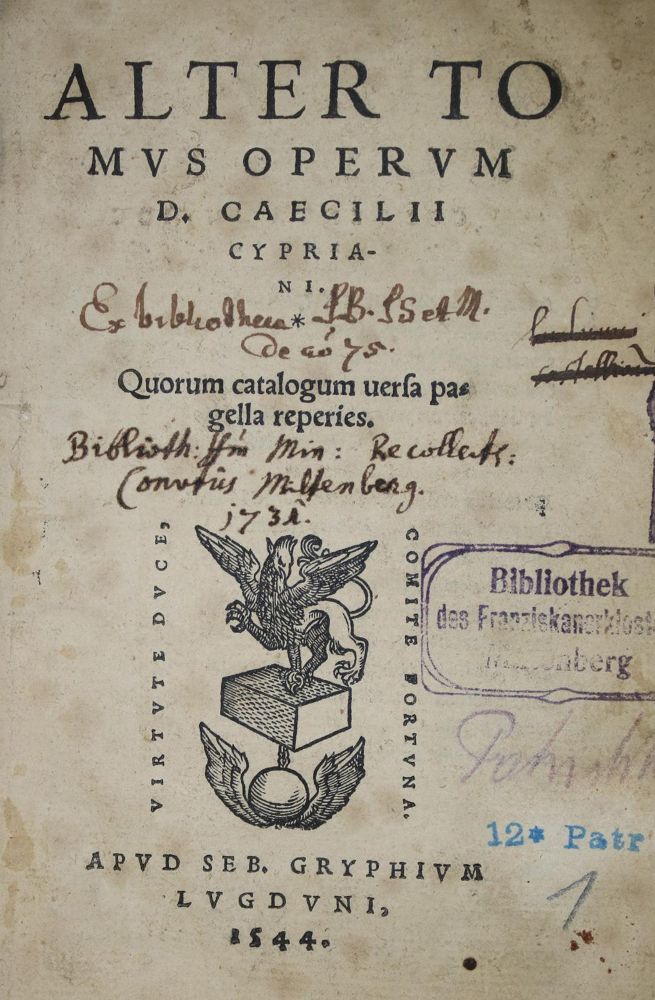 ALTER TO
MVS OPERVM
D. CAECILII
CYPRIA-
NI.
Ex bibliotheca * et M.
De aó 75.
Quorum catalogum uerſa pa-
gella reperies.
Biblioth: Min: Recollect:
Miltenberg.
VIRTVTE DVCE,
COMITE FORTVNA.
Bibliothek
des Franziskanerklost
Miltenberg
12* Patr
1
APVD SEB. GRYPHIVM
LVGDVNI,
1544.